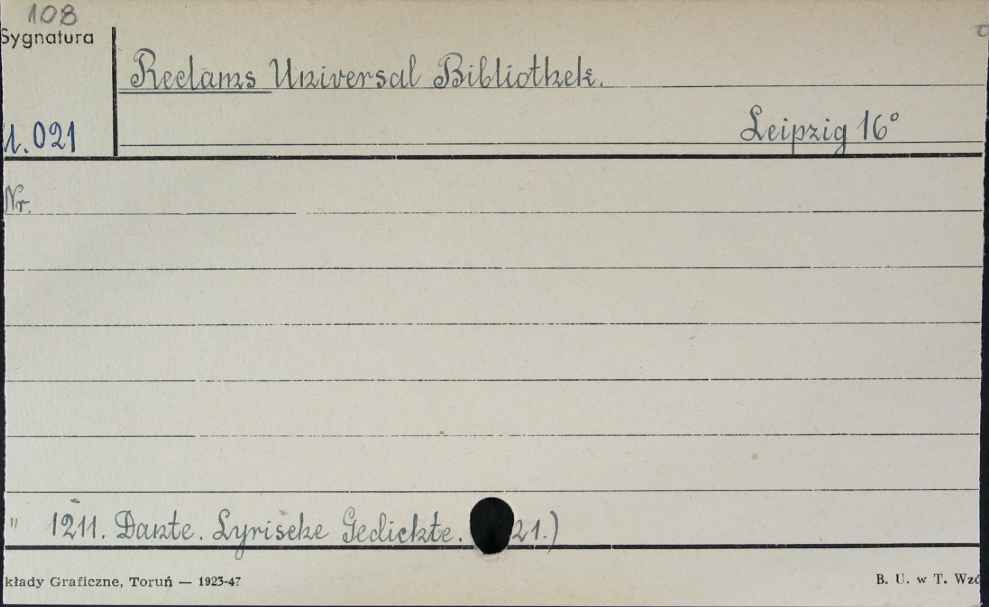 108
Sygnatura
Reclams Universal Bibliothek.
Leipzig 16°
1.021
Nr.
" 1211. Dante. Lyrische Gedichte. 21.)
kłady Graficzne, Toruń — 1923-47
B. U. w T. Wzó